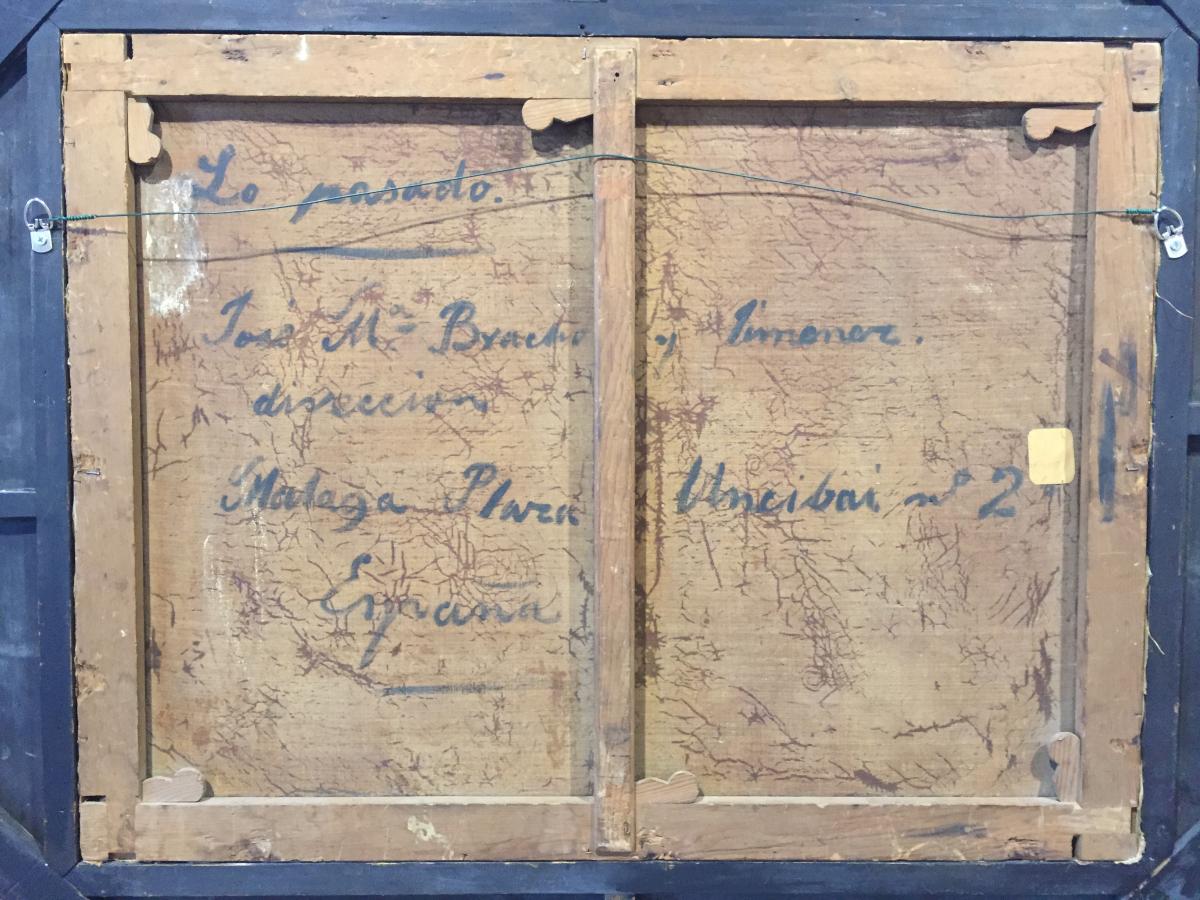 Lo pasado.
José Mª Bracho y Simonez.
direccion
Malaga Plaza Uncibai nº 2
España